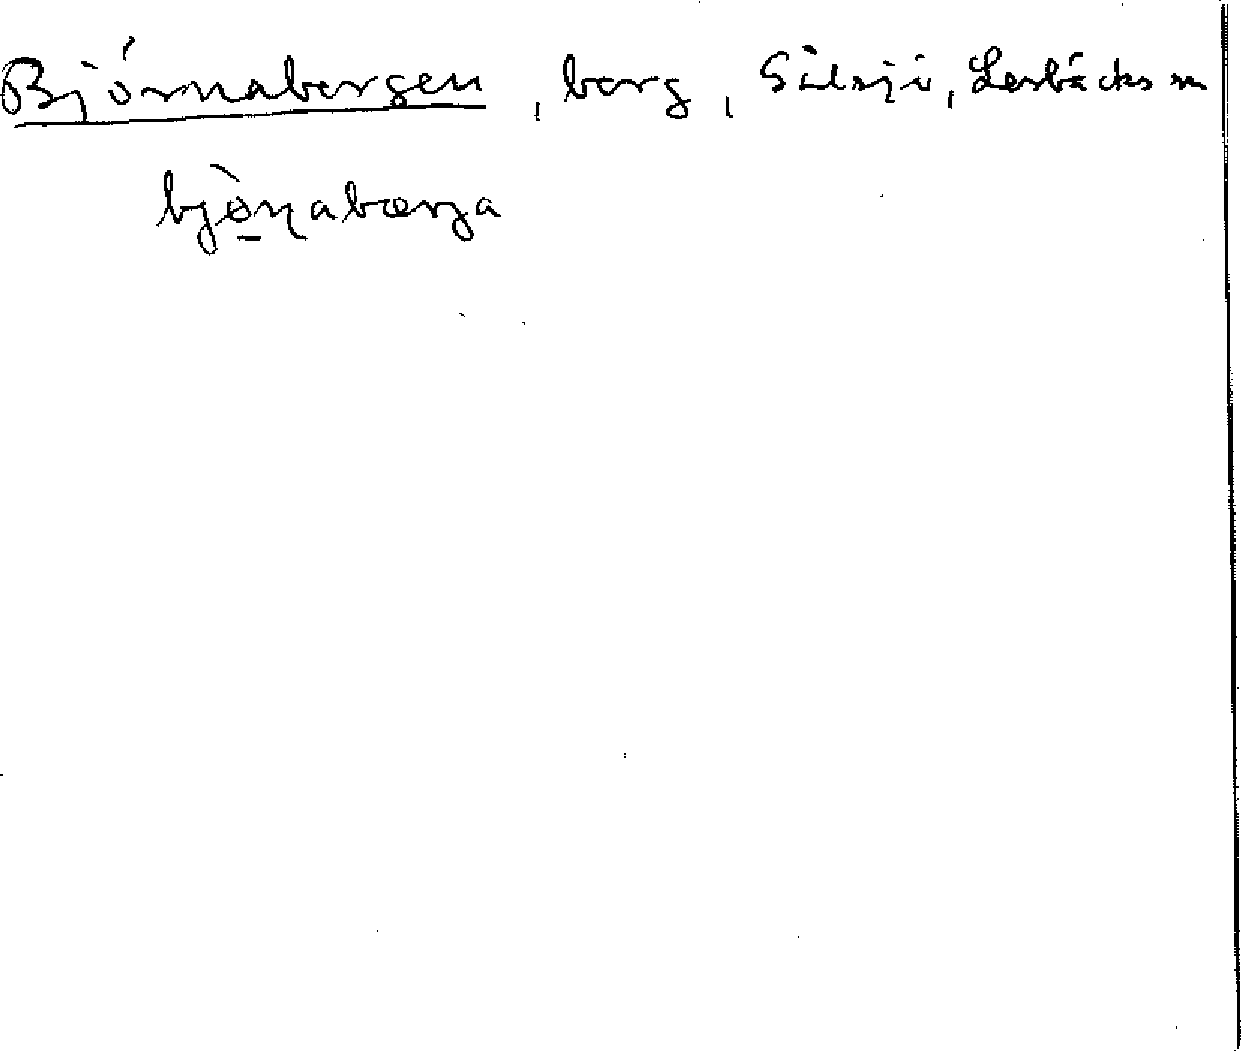 Björnabergen, berg, Sälsjö, Lerbäcks sn
bjònabærja